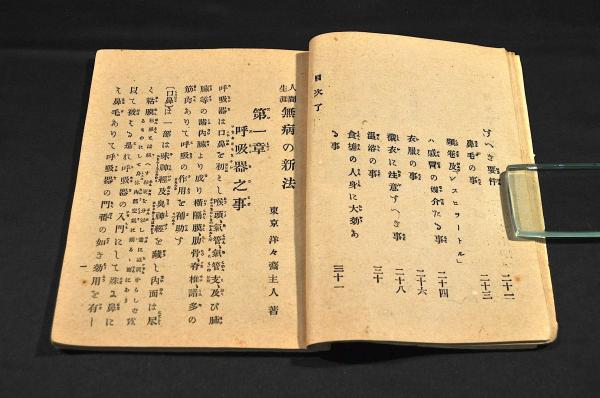 げべき要件 二十二
鼻毛の事 二十三
頸卷及「レスピラートル」
ハ感冒の媒介たる事 二十四
衣服の事 二十六
襯衣に注意すべき事 二十八
溫浴の事 三十
食塩の人身に大効あ
る事 三十一
目次了
人間生涯 無病の新法
東京 洋々齋主人著
第一章
呼吸器之事
呼吸器は口鼻を初とし喉頭氣管氣管支及び肺
臓等の諸內臓より成り橫隔膜肋骨脊椎諸多の
筋肉ありて呼吸の作用を補助す
(口鼻)は一部は味神經及臭神經を藏し內面は尽
く粘膜
以て被える是れ呼吸器の入門にして殊よ鼻に
え鼻毛ありて呼吸器の門番の如き効用を有し
一